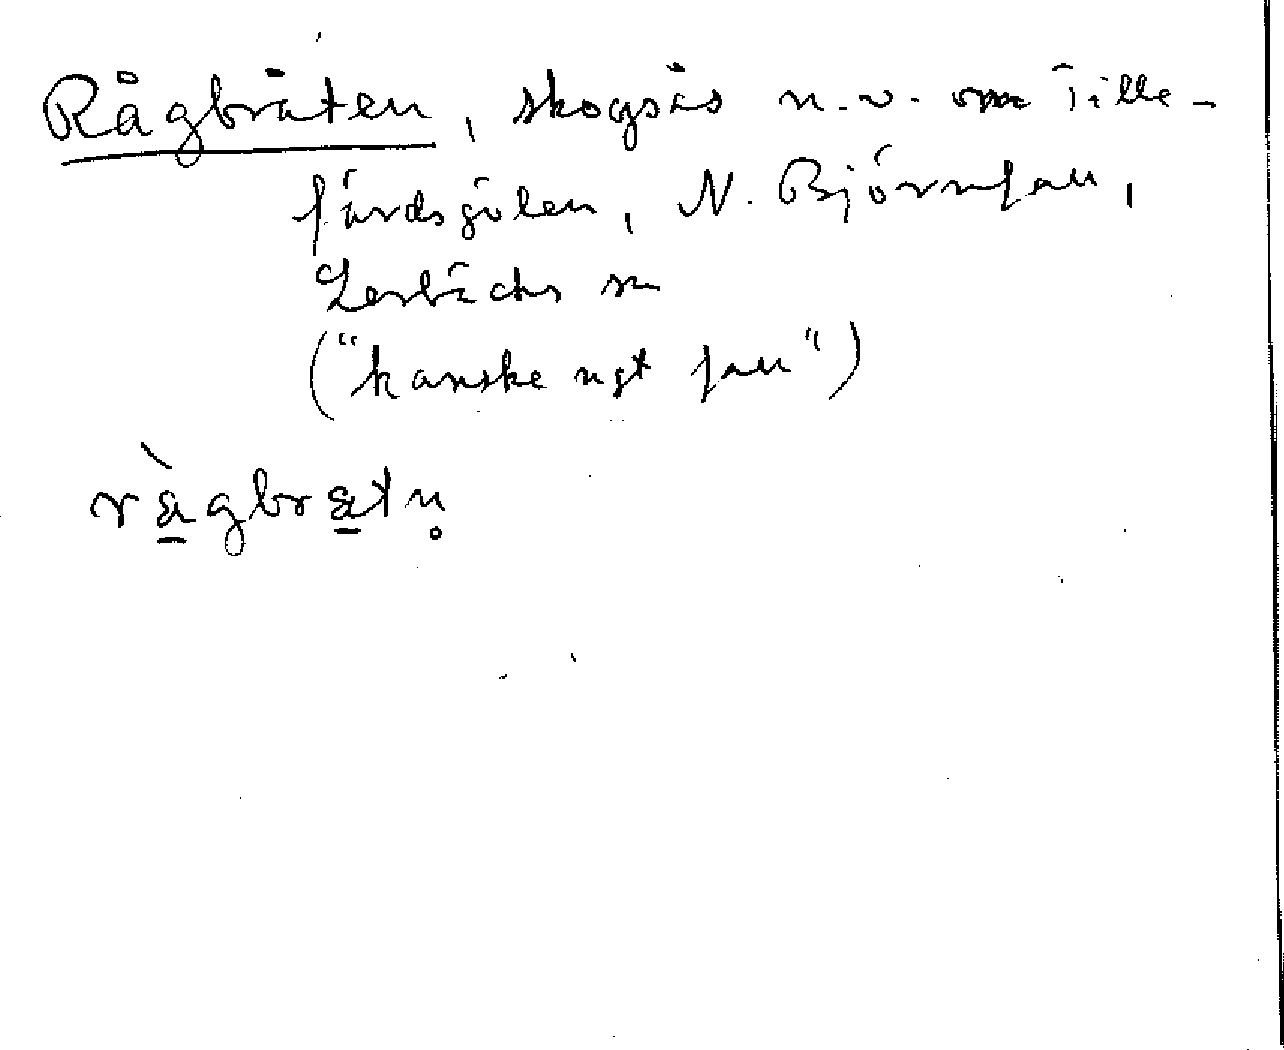 Rågbråten, skogsås n.v. om Tille-
färdsgölen, N. Björnfall,
Lerbäcks sn
("kanske ngt fall")